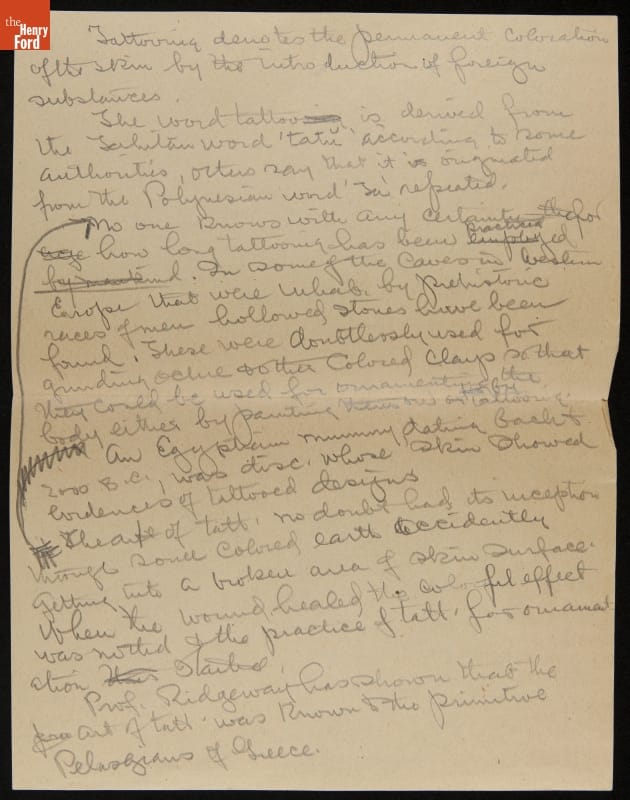 the
Henry
Ford
Tattooing denotes the permanent coloration
of the skin by the introduction of foreign
substances.
The word tattooing is derived from
the Tahitan word 'tatu' according to some
authorities, others say that it is originated
from the Polynesian word 'Ta' repeated.
No one knows with any certainty the for
age how long tattooing has been practiced employed
by mankind. In some of the caves in western
Europe that were inhab. by prehistoric
races of men hollowed stones have been
found. These were doubtlessly used for
grinding ochre & other colored clays so that
they could be used for ornamenting the
body either by painting or by tattooing.
An Egyptian mummy dating back to
2000 B.C., was disc. whose skin showed
evidences of tattooed designs
The art of tatt. no doubt had its inception
through some colored earth accidently
getting into a broken area of skin surface.
When the wound healed the colorful effect
was noted & the practice of tatt. for ornament
ation started.
Prof. Ridgeway has shown that the
art of tatt. was known to the primitive
Pelasgians of Greece.